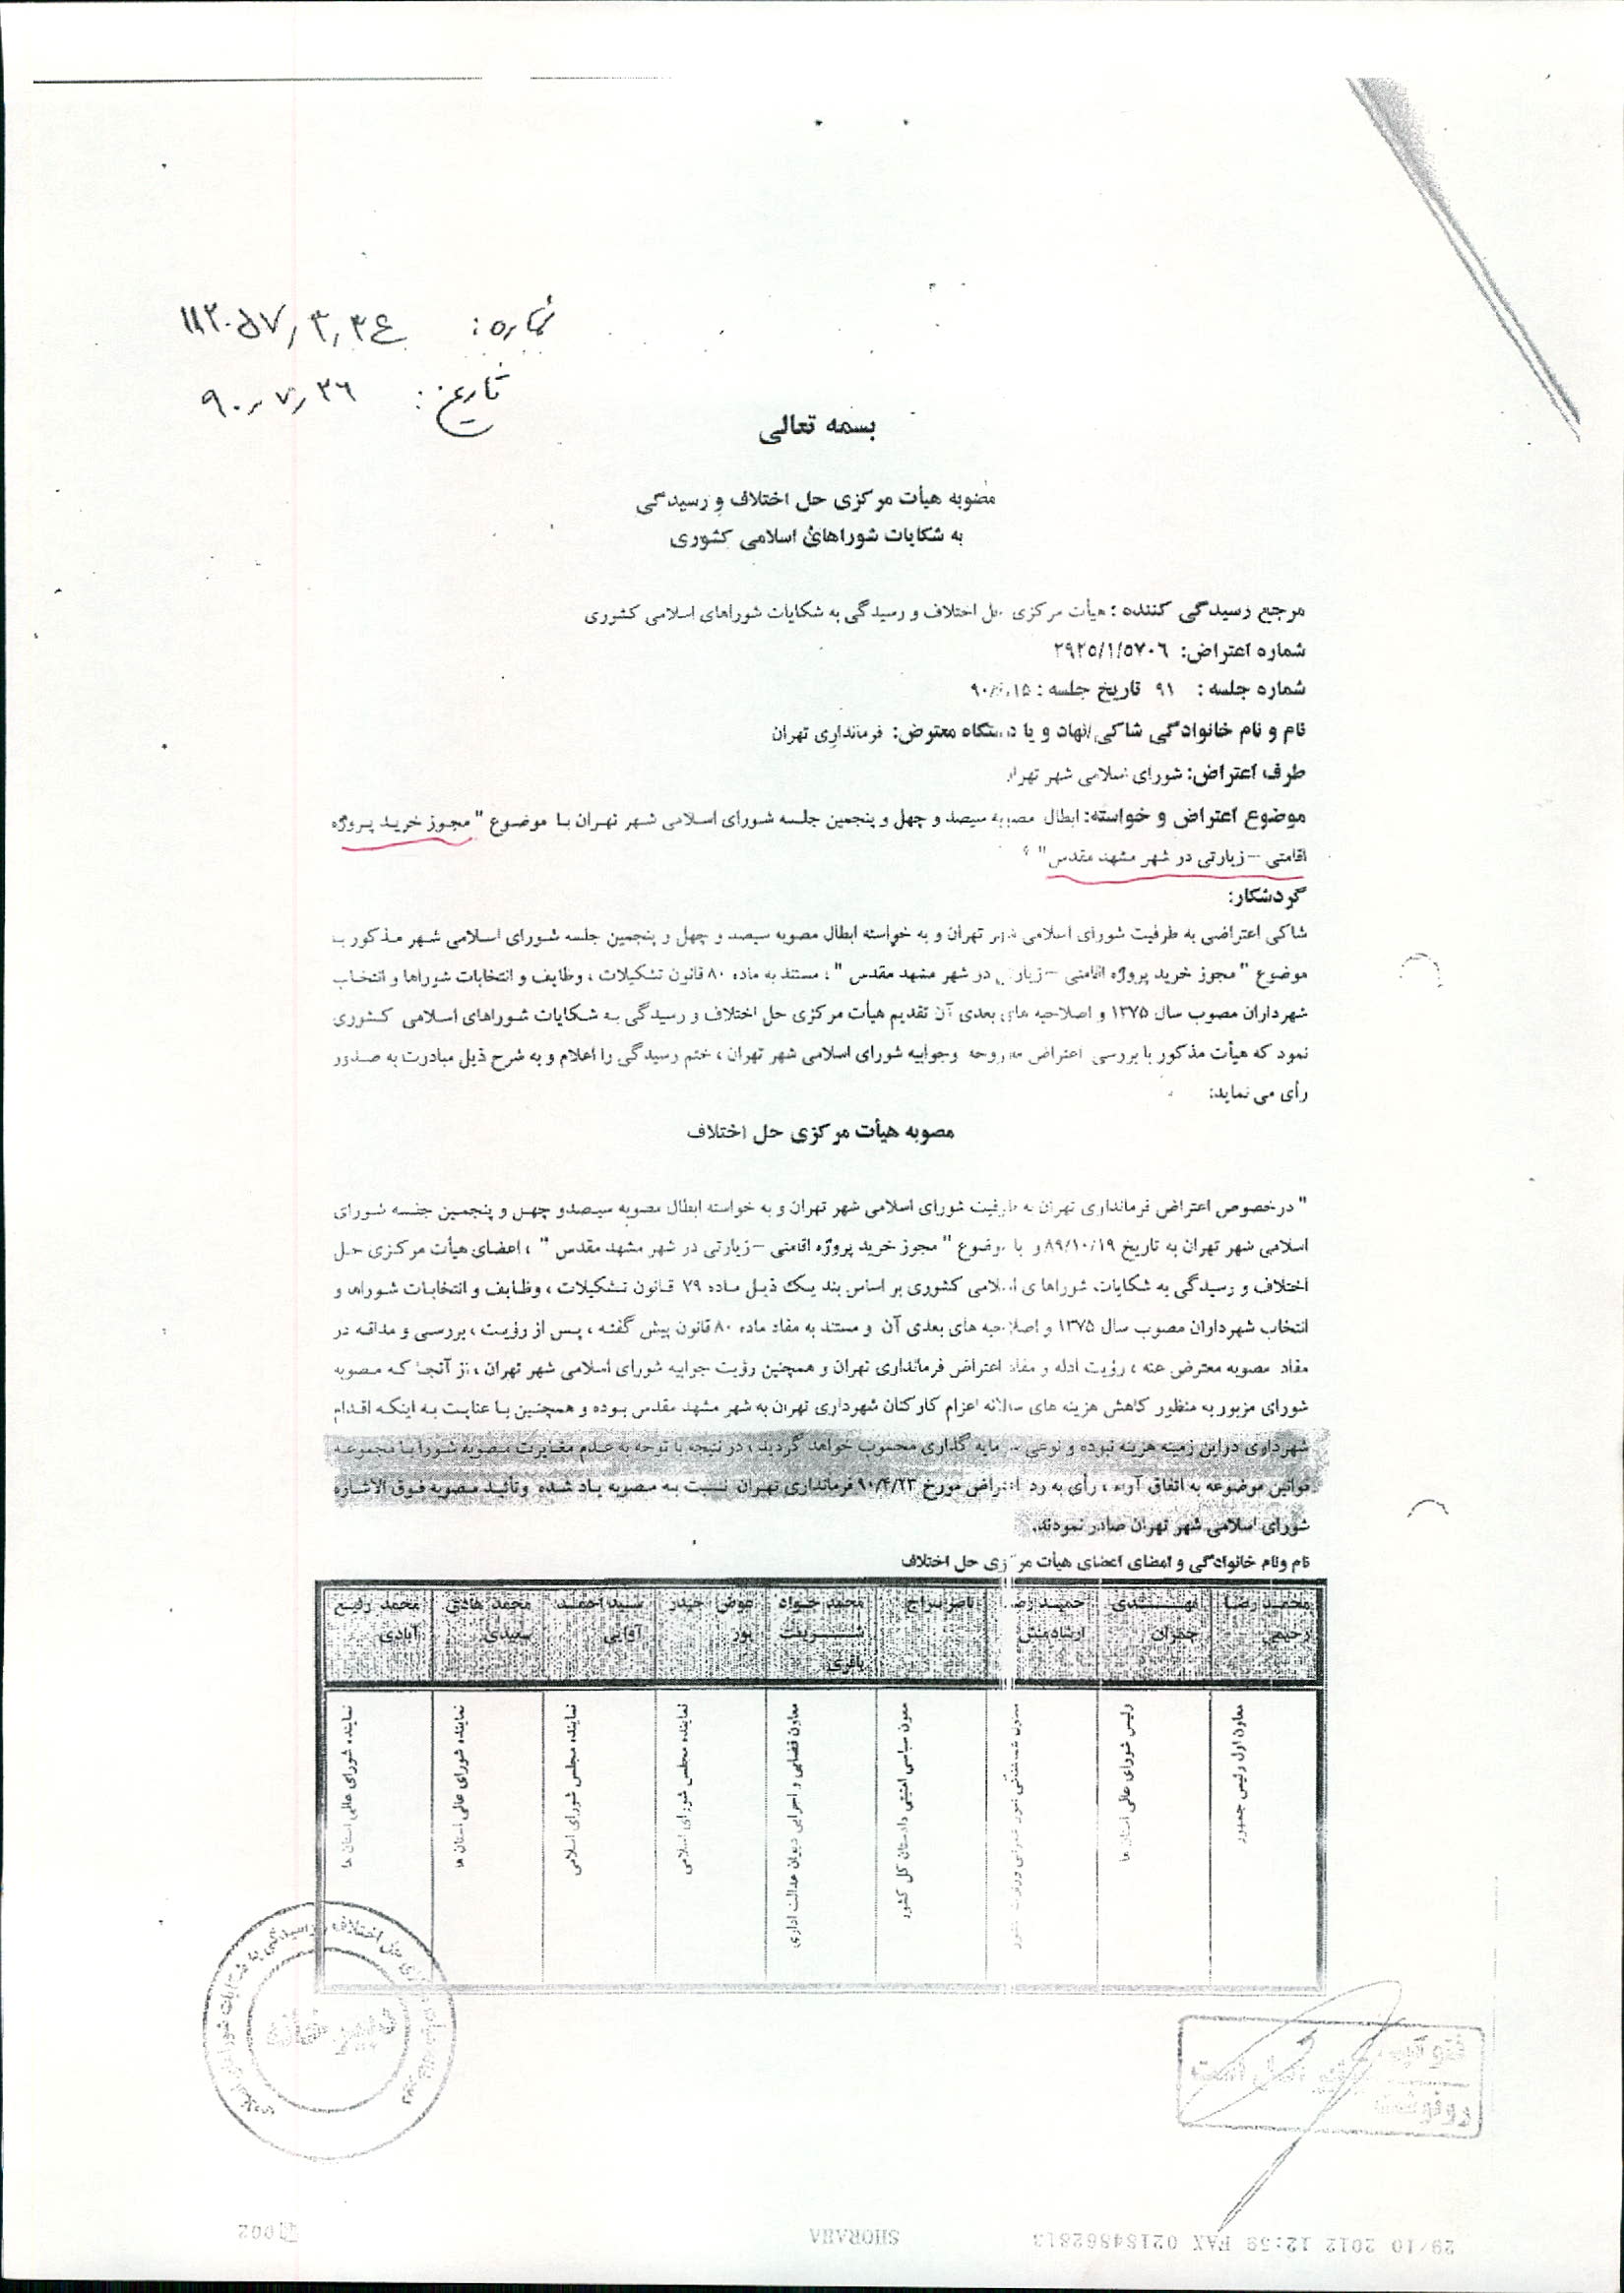 شماره: ۱۱۲۰۵۷٫۳٫۳۴
تاریخ: ۹۰٫۷٫۲۶
بسمه تعالی
مصوبه هیأت مرکزی حل اختلاف و رسیدگی
به شکایات شوراهای اسلامی کشوری
مرجع رسیدگی کننده : هیأت مرکزی حل اختلاف و رسیدگی به شکایات شوراهای اسلامی کشوری
شماره اعتراض: ۲۹۲۵/۱/۵۷۰۶
شماره جلسه : ۹۱ تاریخ جلسه :
نام و نام خانوادگی شاکی/نهاد و یا دستگاه معترض: فرمانداری تهران
طرف اعتراض: شورای اسلامی شهر تهران
موضوع اعتراض و خواسته: ابطال مصوبه سیصد و چهل و پنجمین جلسه شورای اسلامی شهر تهران با موضوع " مجوز خرید پروژه
اقامتی – زیارتی در شهر مشهد مقدس"
گردشکار:
شاکی اعتراضی به طرفیت شورای اسلامی شهر تهران و به خواسته ابطال مصوبه سیصد و چهل و پنجمین جلسه شورای اسلامی شهر مذکور با
موضوع " مجوز خرید پروژه اقامتی – زیارتی در شهر مشهد مقدس " ، مستند به ماده ۸۰ قانون تشکیلات ، وظایف و انتخابات شوراها و انتخاب
شهرداران مصوب سال ۱۳۷۵ و اصلاحیه های بعدی آن تقدیم هیأت مرکزی حل اختلاف و رسیدگی به شکایات شوراهای اسلامی کشوری
نمود که هیأت مذکور با بررسی اعتراض مطروحه وجوابیه شورای اسلامی شهر تهران ، ختم رسیدگی را اعلام و به شرح ذیل مبادرت به صدور
رأی می نماید:
مصوبه هیأت مرکزی حل اختلاف
" درخصوص اعتراض فرمانداری تهران به طرفیت شورای اسلامی شهر تهران و به خواسته ابطال مصوبه سیصدو چهل و پنجمین جلسه شورای
اسلامی شهر تهران به تاریخ ۸۹/۱۰/۱۹ و با موضوع " مجوز خرید پروژه اقامتی – زیارتی در شهر مشهد مقدس " ، اعضای هیأت مرکزی حل
اختلاف و رسیدگی به شکایات شوراهای اسلامی کشوری بر اساس بند یک ذیل ماده ۷۹ قانون تشکیلات ، وظایف و انتخابات شوراها و
انتخاب شهرداران مصوب سال ۱۳۷۵ و اصلاحیه های بعدی آن و مستند به مفاد ماده ۸۰ قانون پیش گفته ، پس از رؤیت ، بررسی و مداقه در
مفاد مصوبه معترض عنه ، رؤیت ادله و مفاد اعتراض فرمانداری تهران و همچنین رؤیت جوابیه شورای اسلامی شهر تهران ، از آنجا که مصوبه
شورای مزبور به منظور کاهش هزینه های سالانه اعزام کارکنان شهرداری تهران به شهر مشهد مقدس بوده و همچنین با عنایت به اینکه اقدام
شهرداری دراین زمینه هزینه نبوده و نوعی سرمایه گذاری محسوب خواهد گردید ، در نتیجه با توجه به عدم مغایرت مصوبه شورا با مجموعه
قوانین موضوعه به اتفاق آراء ، رأی به رد اعتراض مورخ ۹۰/۴/۲۳ فرمانداری تهران نسبت به مصوبه یاد شده وتأئید مصوبه فوق الاشاره
شورای اسلامی شهر تهران صادر نمودند.
نام ونام خانوادگی و امضای اعضای هیأت مرکزی حل اختلاف
محمد رضا رحیمی
مهندس چمران
حمید رضا ارشادمنش
ناصر سراج
محمد جواد شریعت باقری
عوض حیدر پور
سید احمد آوایی
محمد هادی سعیدی
محمد رفیع آبادی
معاون اول رئیس جمهور
رئیس شورای عالی استان ها
معاون سیاسی امنیتی دادستان کل کشور
معاون قضایی و اجرایی دیوان عدالت اداری
نماینده مجلس شورای اسلامی
نماینده مجلس شورای اسلامی
نماینده شورای عالی استان ها
نماینده شورای عالی استان ها
دبیرخانه
فتوکپی برابر اصل است
رونوشت
29/10 2012 12:59 FAX 02184862813
SHORAHA
002